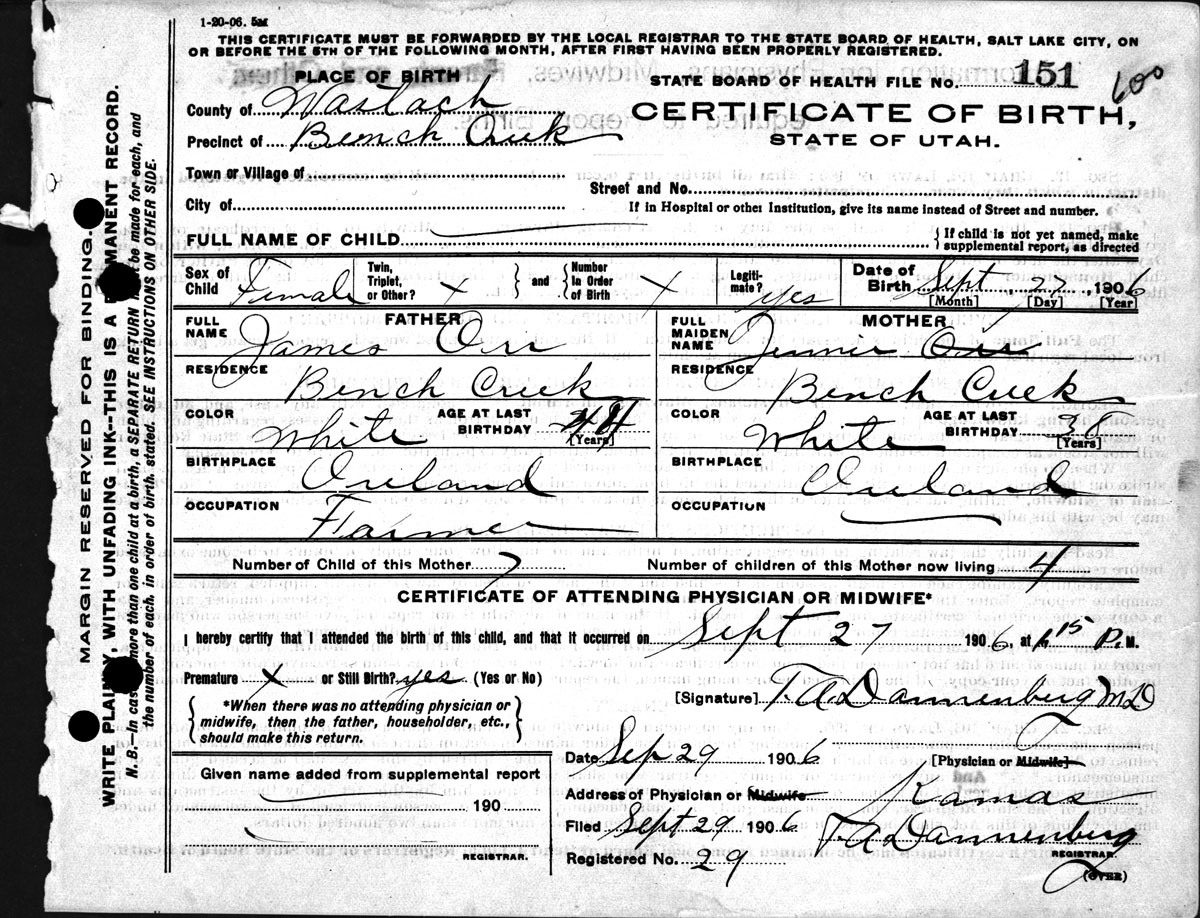 1-20-06. 5M
THIS CERTIFICATE MUST BE FORWARDED BY THE LOCAL REGISTRAR TO THE STATE BOARD OF HEALTH, SALT LAKE CITY, ON
OR BEFORE THE 5TH OF THE FOLLOWING MONTH, AFTER FIRST HAVING BEEN PROPERLY REGISTERED.
PLACE OF BIRTH
STATE BOARD OF HEALTH FILE NO. 151 600
County of Wastach
CERTIFICATE OF BIRTH,
Precinct of Bench Creek
STATE OF UTAH.
Town or Village of
Street and No.
City of
If in Hospital or other Institution, give its name instead of Street and number.
FULL NAME OF CHILD { If child is not yet named, make supplemental report, as directed
Sex of Child Female Twin, Triplet, or Other? X } and { Number in Order of Birth X Legitimate? yes Date of Birth Sept 27, 1906
[Month] [Day] [Year]
FATHER
FULL NAME James Orr
RESIDENCE Bench Creek
COLOR White AGE AT LAST BIRTHDAY 44 [Years]
BIRTHPLACE Ireland
OCCUPATION Farmer
MOTHER
FULL MAIDEN NAME Orr
RESIDENCE Bench Creek
COLOR White AGE AT LAST BIRTHDAY 38 [Years]
BIRTHPLACE Ireland
OCCUPATION
Number of Child of this Mother 7 Number of children of this Mother now living 4
CERTIFICATE OF ATTENDING PHYSICIAN OR MIDWIFE*
I hereby certify that I attended the birth of this child, and that it occurred on Sept 27 1906, at 15 P.M.
Premature X or Still Birth? yes (Yes or No)
[Signature] T. A Dannenberg MD
{ *When there was no attending physician or
midwife, then the father, householder, etc.,
should make this return. }
Date Sep 29 1906 [Physician or Midwife]
Given name added from supplemental report
190
REGISTRAR.
Address of Physician or Midwife Kamas
Filed Sept 29 1906 T A Dannenberg
Registered No. 29 REGISTRAR.
(OVER)
MARGIN RESERVED FOR BINDING.
WRITE PLAINLY, WITH UNFADING INK--THIS IS A PERMANENT RECORD.
N. B.--In case of more than one child at a birth, a SEPARATE RETURN must be made for each, and
the number of each, in order of birth, stated. SEE INSTRUCTIONS ON OTHER SIDE.